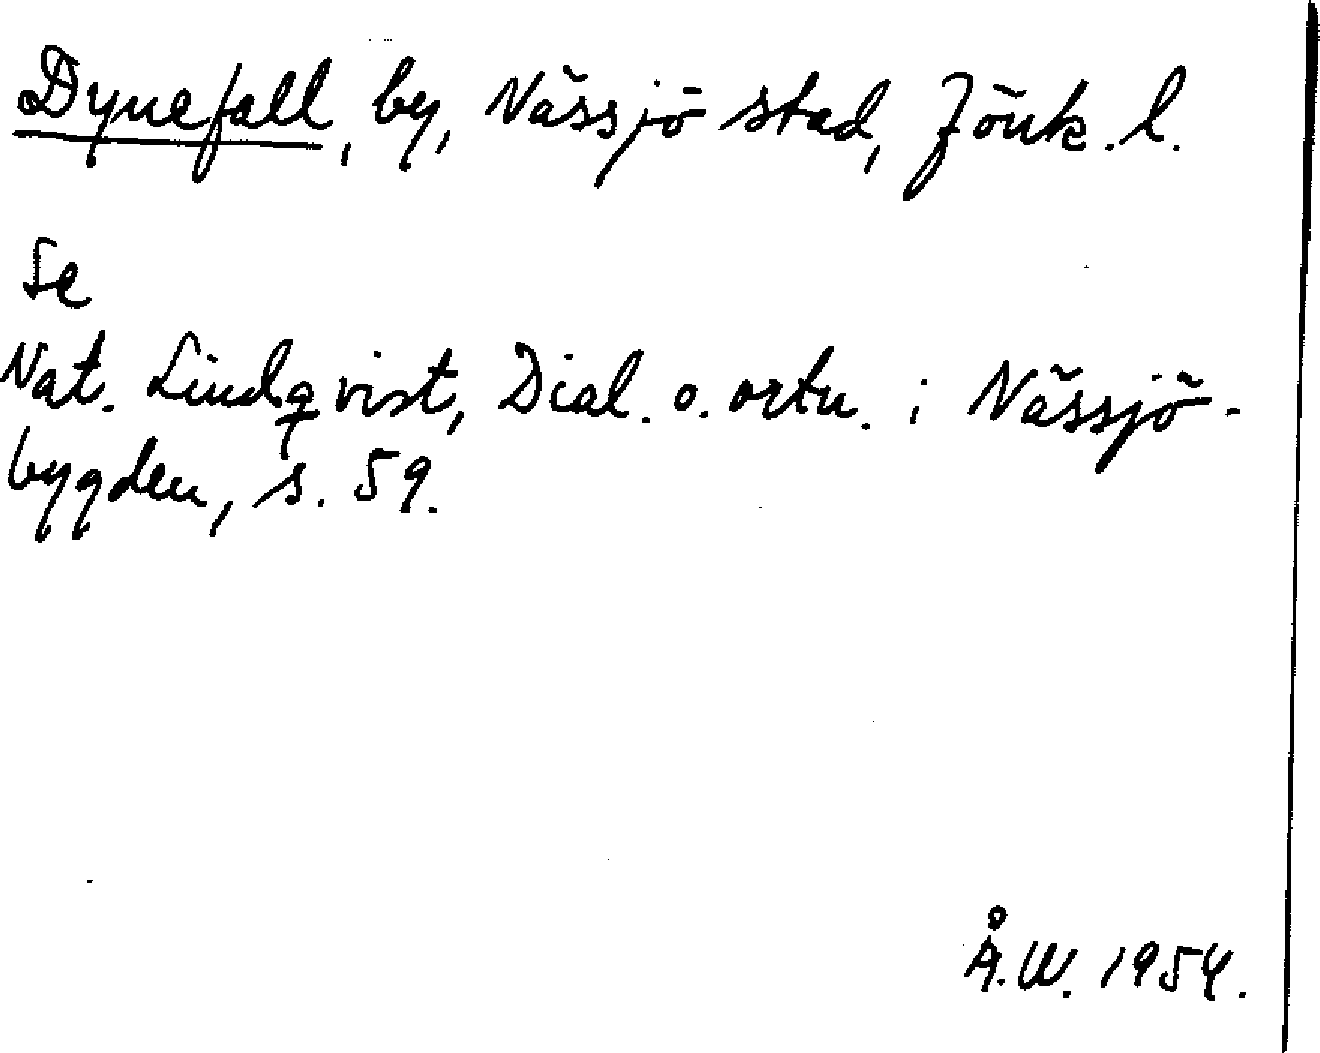 Dynefall, by, Nässjö stad, Jönk. l.
Se
Nat. Lindqvist, Dial. o. ortn. i Nässjö-
bygden, s. 59.
Å.W. 1954.